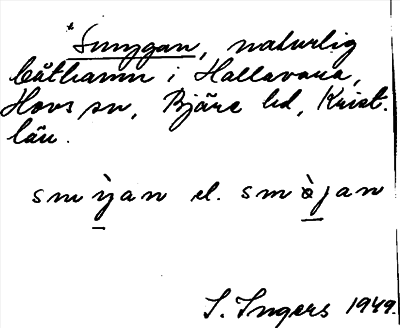 * Smygan, naturlig
båthamn i Hallavara,
Hovs sn, Bjäre hd, Krist.
län.
smỳan el. smòjan
I. Ingers 1949.